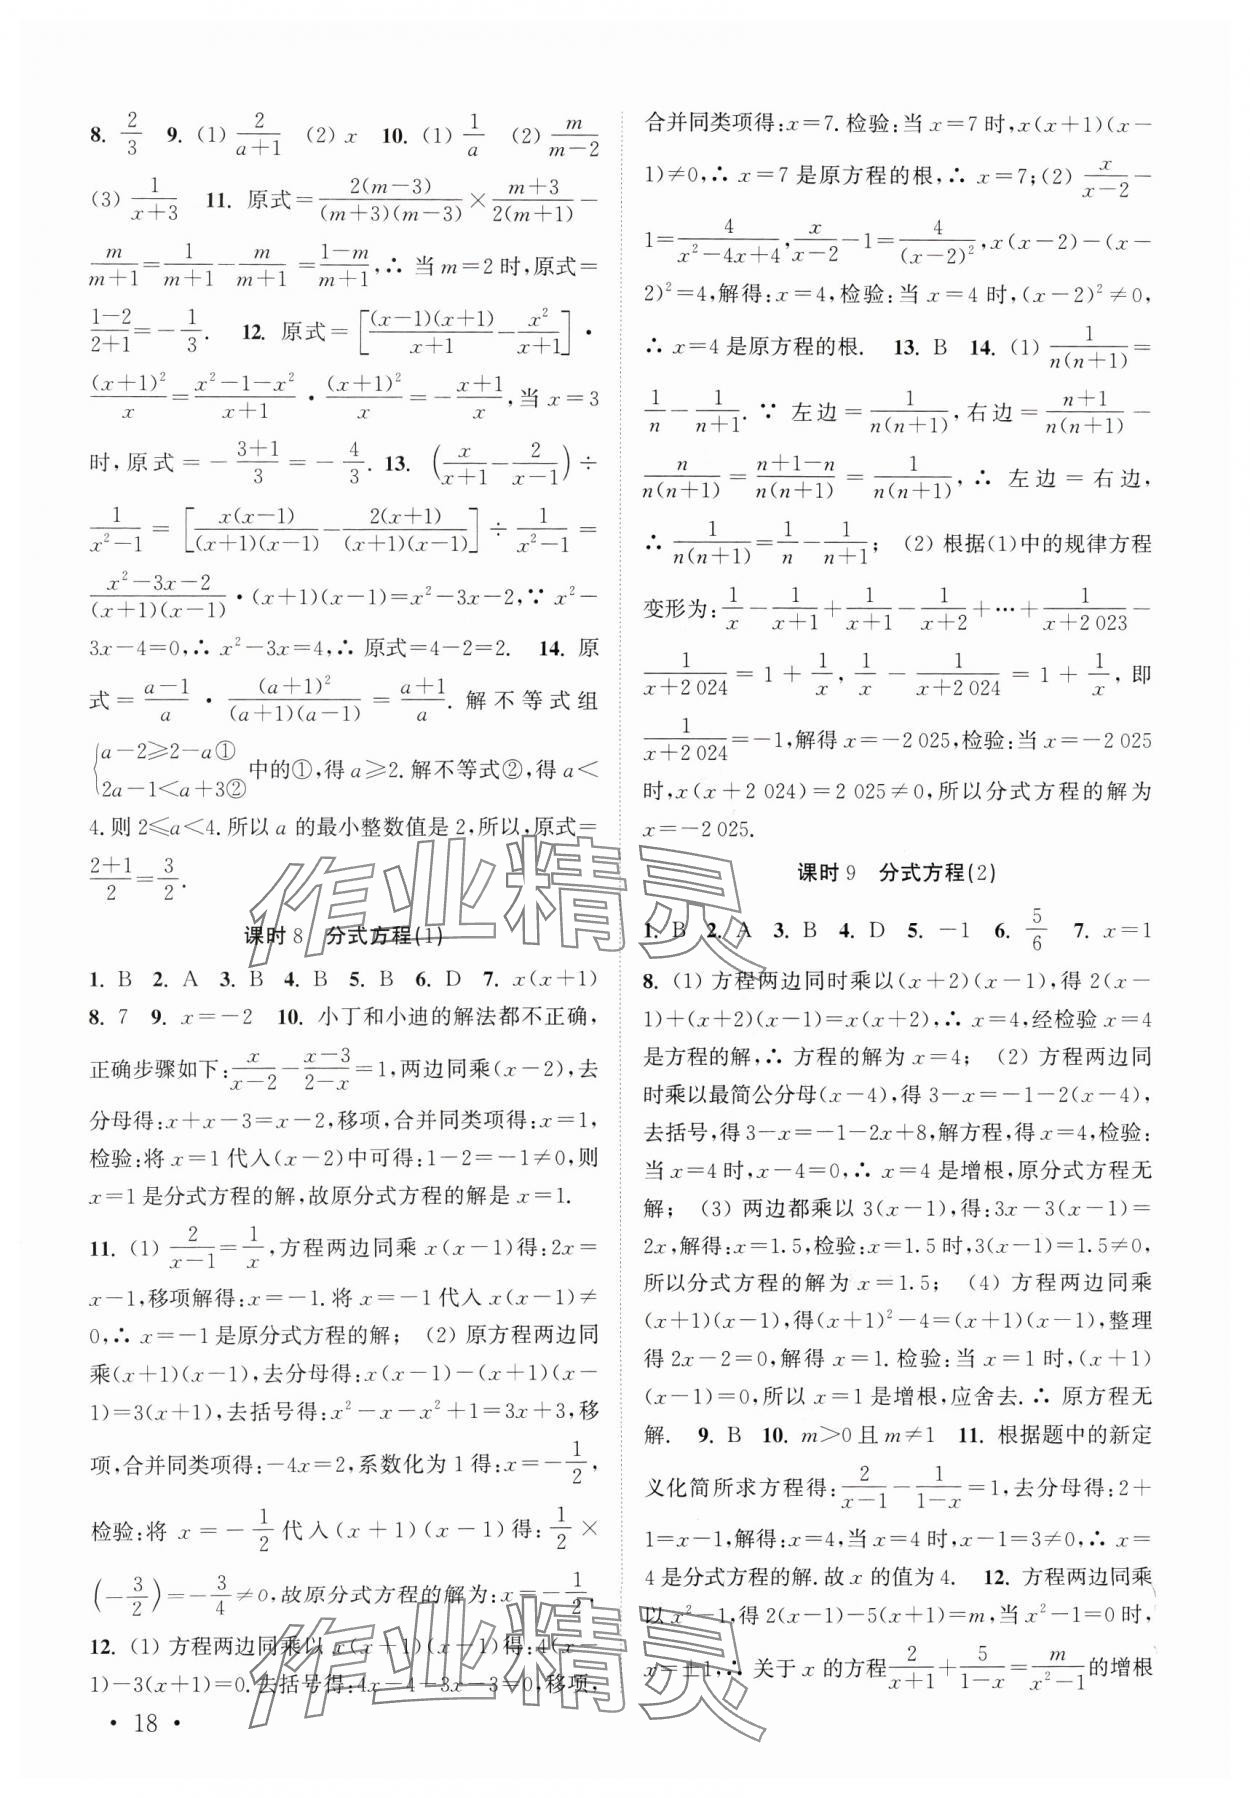 8. 2/3　9. (1) 2/(a+1)　(2) x　10. (1) 1/a　(2) m/(m-2)
(3) 1/(x+3)　11. 原式=2(m-3)/((m+3)(m-3))×(m+3)/(2(m+1))-
m/(m+1)=1/(m+1)-m/(m+1)=(1-m)/(m+1),∴当m=2时,原式=
(1-2)/(2+1)=-1/3.　12. 原式=[(x-1)(x+1)/(x+1)-x²/(x+1)]·
(x+1)²/x=(x²-1-x²)/(x+1)·(x+1)²/x=-(x+1)/x,当x=3
时,原式=-(3+1)/3=-4/3.　13. (x/(x+1)-2/(x-1))÷
1/(x²-1)=[x(x-1)/((x+1)(x-1))-2(x+1)/((x+1)(x-1))]÷1/(x²-1)=
(x²-3x-2)/((x+1)(x-1))·(x+1)(x-1)=x²-3x-2,∵x²-
3x-4=0,∴x²-3x=4,∴原式=4-2=2.　14. 原
式=(a-1)/a·(a+1)²/((a+1)(a-1))=(a+1)/a.解不等式组
{a-2≥2-a①
2a-1<a+3②中的①,得a≥2.解不等式②,得a<
4.则2≤a<4.所以a的最小整数值是2,所以,原式=
(2+1)/2=3/2.
课时8　分式方程(1)
1. B　2. A　3. B　4. B　5. B　6. D　7. x(x+1)
8. 7　9. x=-2　10. 小丁和小迪的解法都不正确,
正确步骤如下:x/(x-2)-(x-3)/(2-x)=1,两边同乘(x-2),去
分母得:x+x-3=x-2,移项,合并同类项得:x=1,
检验:将x=1代入(x-2)中可得:1-2=-1≠0,则
x=1是分式方程的解,故原分式方程的解是x=1.
11. (1) 2/(x-1)=1/x,方程两边同乘x(x-1)得:2x=
x-1,移项解得:x=-1.将x=-1代入x(x-1)≠
0,∴x=-1是原分式方程的解;　(2) 原方程两边同
乘(x+1)(x-1),去分母得:x(x-1)-(x+1)(x-
1)=3(x+1),去括号得:x²-x-x²+1=3x+3,移
项,合并同类项得:-4x=2,系数化为1得:x=-1/2,
检验:将x=-1/2代入(x+1)(x-1)得:1/2×
(-3/2)=-3/4≠0,故原分式方程的解为:x=-1/2.
12. (1) 方程两边同乘以x(x+1)(x-1)得:4(x-
1)-3(x+1)=0.去括号得:4x-4-3x-3=0,移项,
合并同类项得:x=7.检验:当x=7时,x(x+1)(x-
1)≠0,∴x=7是原方程的根,∴x=7;(2) x/(x-2)-
1=4/(x²-4x+4),x/(x-2)-1=4/(x-2)²,x(x-2)-(x-
2)²=4,解得:x=4,检验:当x=4时,(x-2)²≠0,
∴x=4是原方程的根.　13. B　14. (1) 1/(n(n+1))=
1/n-1/(n+1).∵左边=1/(n(n+1)),右边=(n+1)/(n(n+1))-
n/(n(n+1))=(n+1-n)/(n(n+1))=1/(n(n+1)),∴左边=右边,
∴1/(n(n+1))=1/n-1/(n+1);　(2) 根据(1)中的规律方程
变形为:1/x-1/(x+1)+1/(x+1)-1/(x+2)+…+1/(x+2 023)-
1/(x+2 024)=1+1/x,1/x-1/(x+2 024)=1+1/x,即
1/(x+2 024)=-1,解得x=-2 025,检验:当x=-2 025
时,x(x+2 024)=2 025≠0,所以分式方程的解为
x=-2 025.
课时9　分式方程(2)
1. B　2. A　3. B　4. D　5. -1　6. 5/6　7. x=1
8. (1) 方程两边同时乘以(x+2)(x-1),得2(x-
1)+(x+2)(x-1)=x(x+2),∴x=4,经检验x=4
是方程的解,∴方程的解为x=4;　(2) 方程两边同
时乘以最简公分母(x-4),得3-x=-1-2(x-4),
去括号,得3-x=-1-2x+8,解方程,得x=4,检验:
当x=4时,x-4=0,∴x=4是增根,原分式方程无
解;　(3) 两边都乘以3(x-1),得:3x-3(x-1)=
2x,解得:x=1.5,检验:x=1.5时,3(x-1)=1.5≠0,
所以分式方程的解为x=1.5;　(4) 方程两边同乘
(x+1)(x-1),得(x+1)²-4=(x+1)(x-1),整理
得2x-2=0,解得x=1.检验:当x=1时,(x+1)
(x-1)=0,所以x=1是增根,应舍去.∴原方程无
解.　9. B　10. m>0且m≠1　11. 根据题中的新定
义化简所求方程得:2/(x-1)-1/(1-x)=1,去分母得:2+
1=x-1,解得:x=4,当x=4时,x-1=3≠0,∴x=
4是分式方程的解.故x的值为4.　12. 方程两边同乘
以x²-1,得2(x-1)-5(x+1)=m,当x²-1=0时,
x=±1,∴关于x的方程2/(x+1)+5/(1-x)=m/(x²-1)的增根
· 18 ·
作业精灵
作业精灵